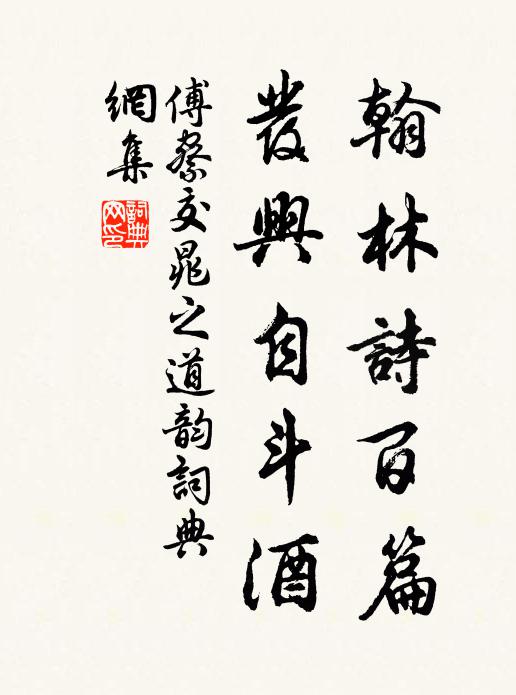 翰林詩百篇
發興自斗酒
傅察次晁之道韵詞典
網集
詞典網印